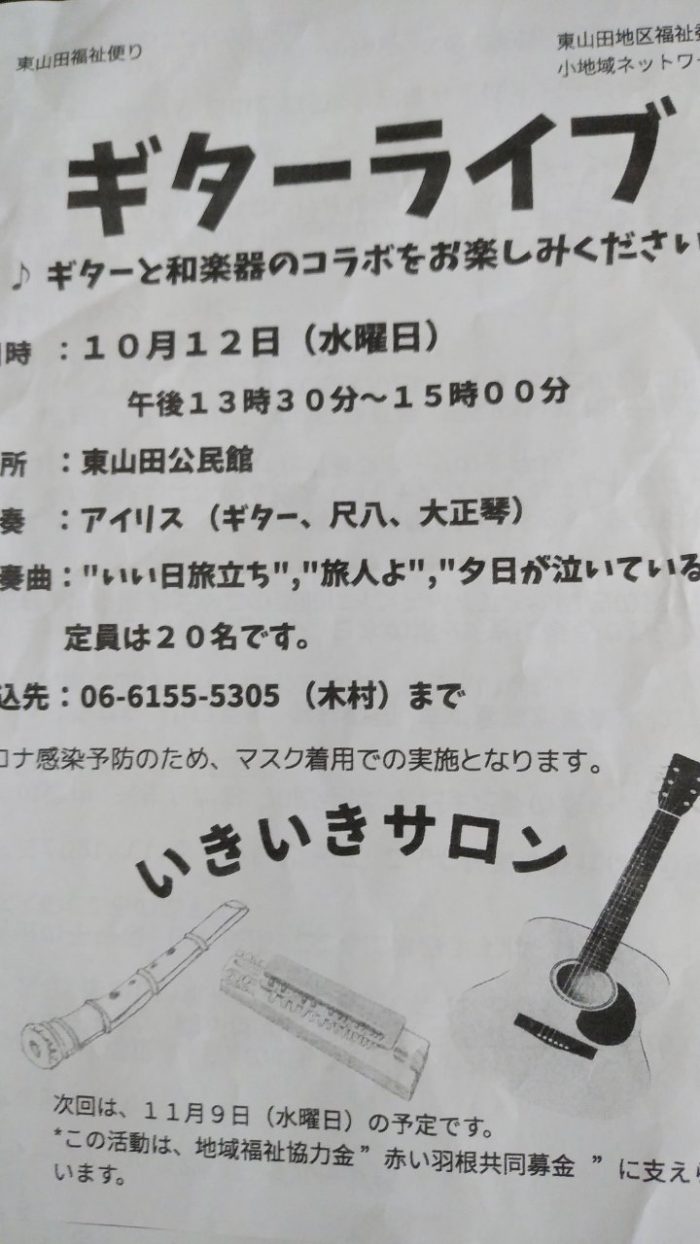 東山田福祉便り
東山田地区福祉委
小地域ネットワー
ギターライブ
♪ ギターと和楽器のコラボをお楽しみください
時 ：１０月１２日（水曜日）
午後１３時３０分～１５時００分
所 ：東山田公民館
奏 ：アイリス （ギター、尺八、大正琴）
奏曲："いい日旅立ち","旅人よ","夕日が泣いている
定員は２０名です。
込先：06-6155-5305 （木村）まで
ロナ感染予防のため、マスク着用での実施となります。
いきいきサロン
次回は、１１月９日（水曜日）の予定です。
*この活動は、地域福祉協力金 ” 赤い羽根共同募金 ” に支えら
います。